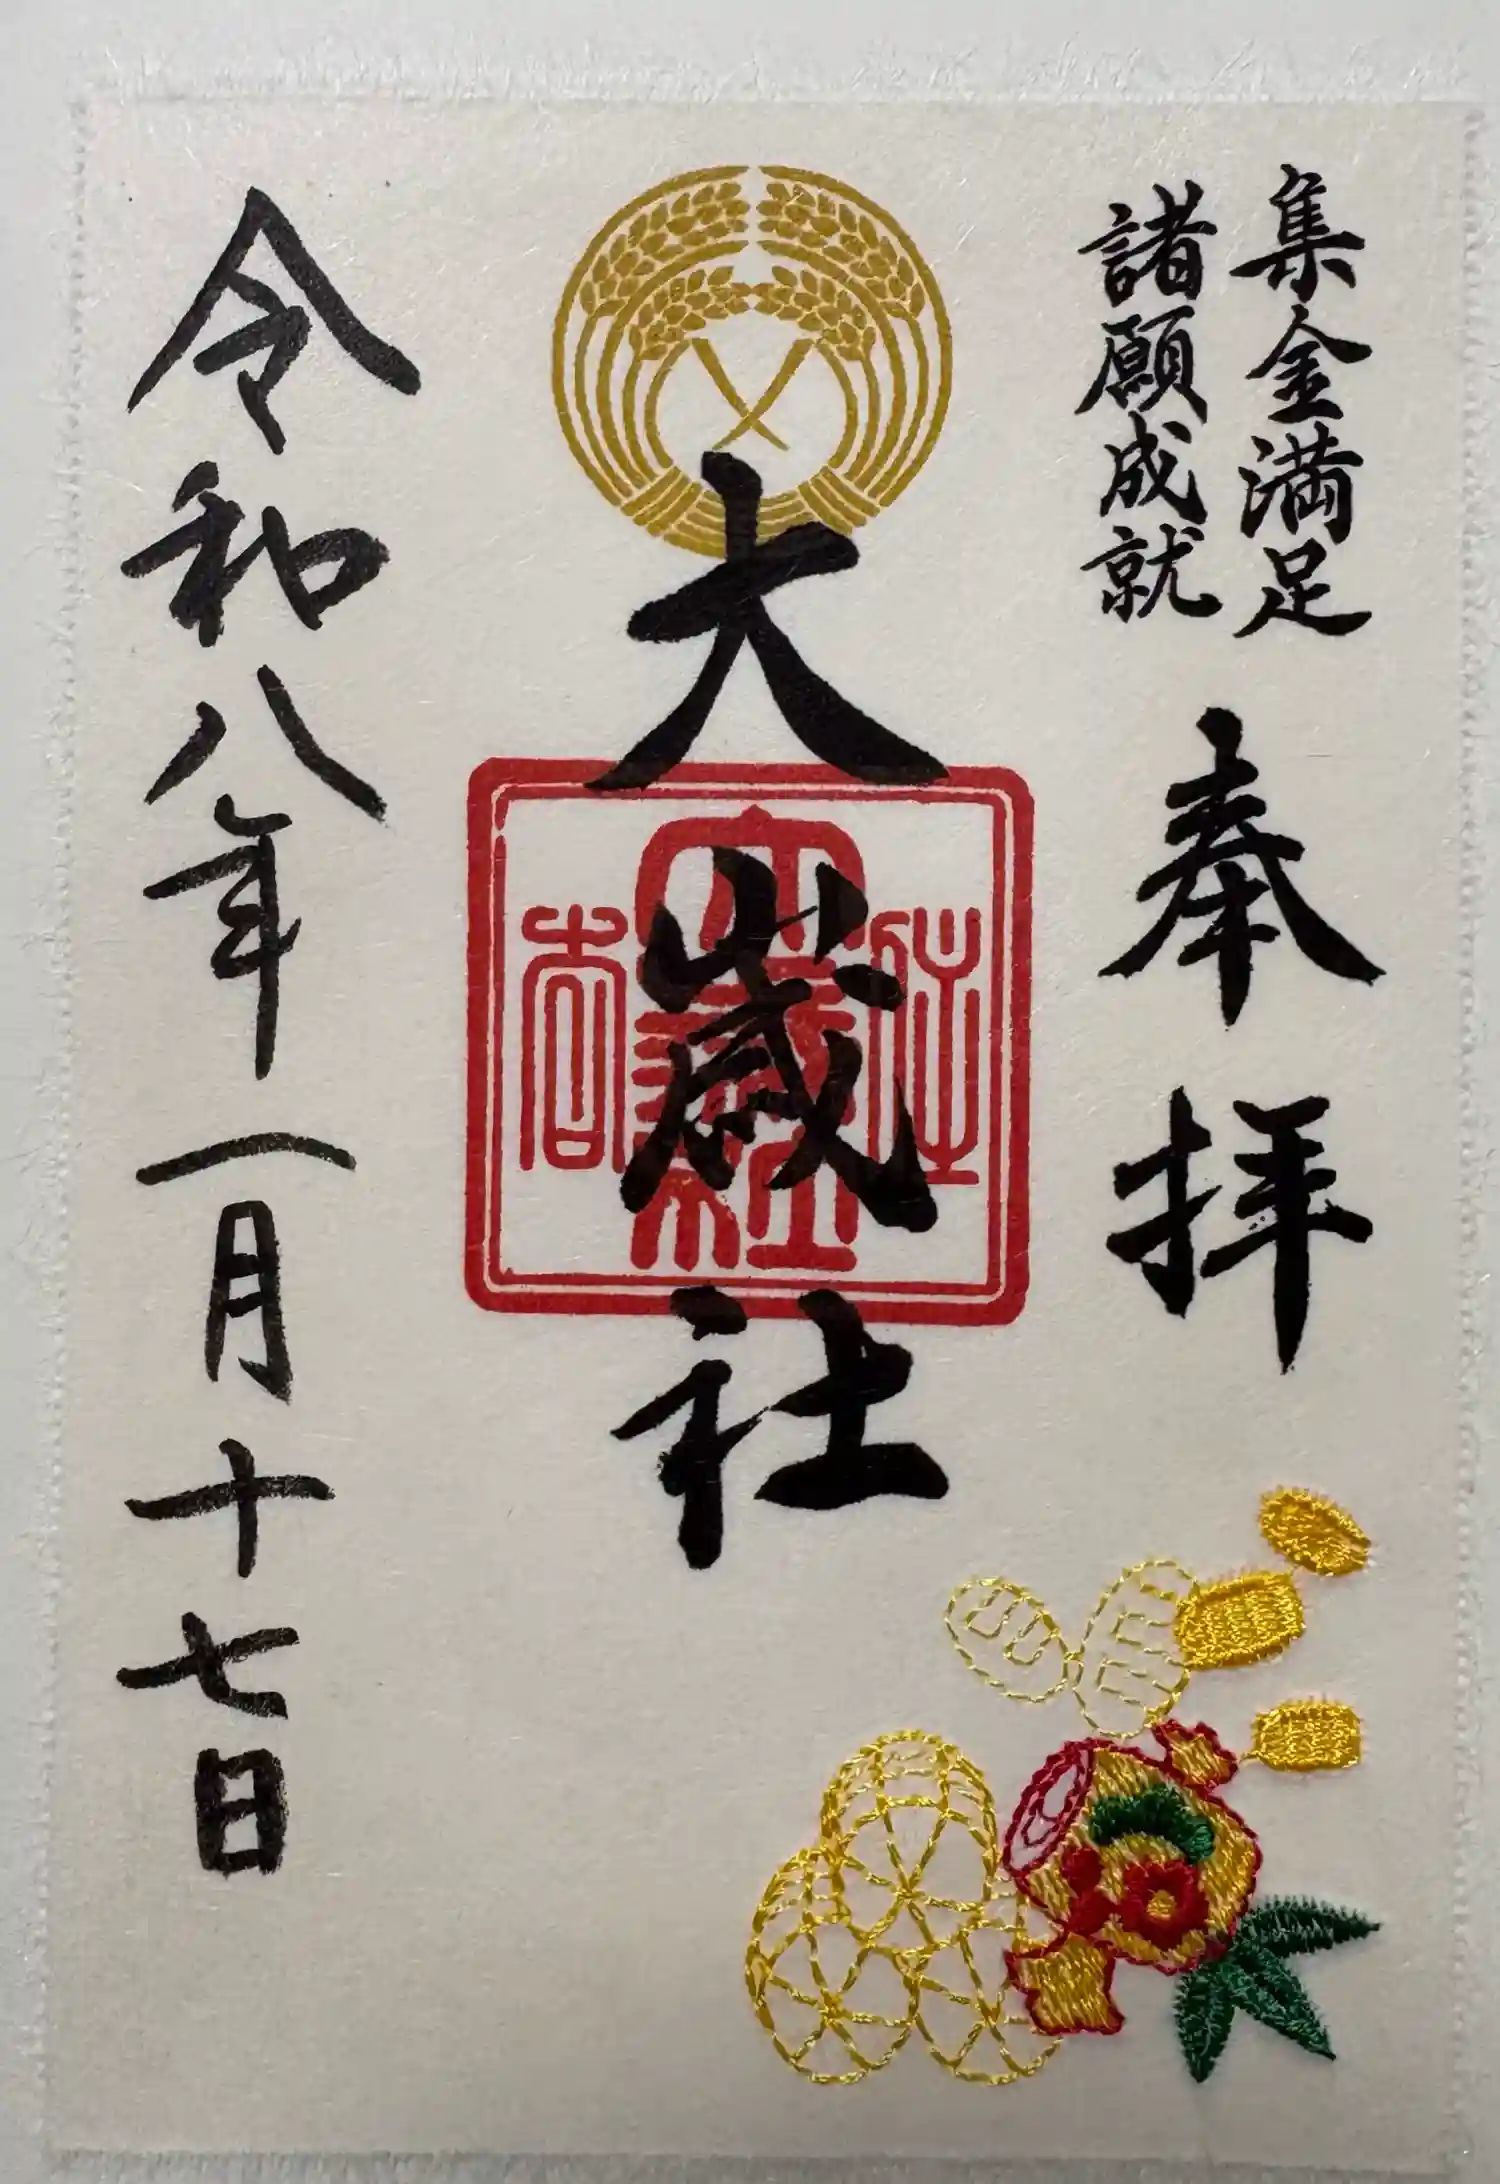 集金満足
諸願成就
奉拝
大歳社
令和八年一月十七日